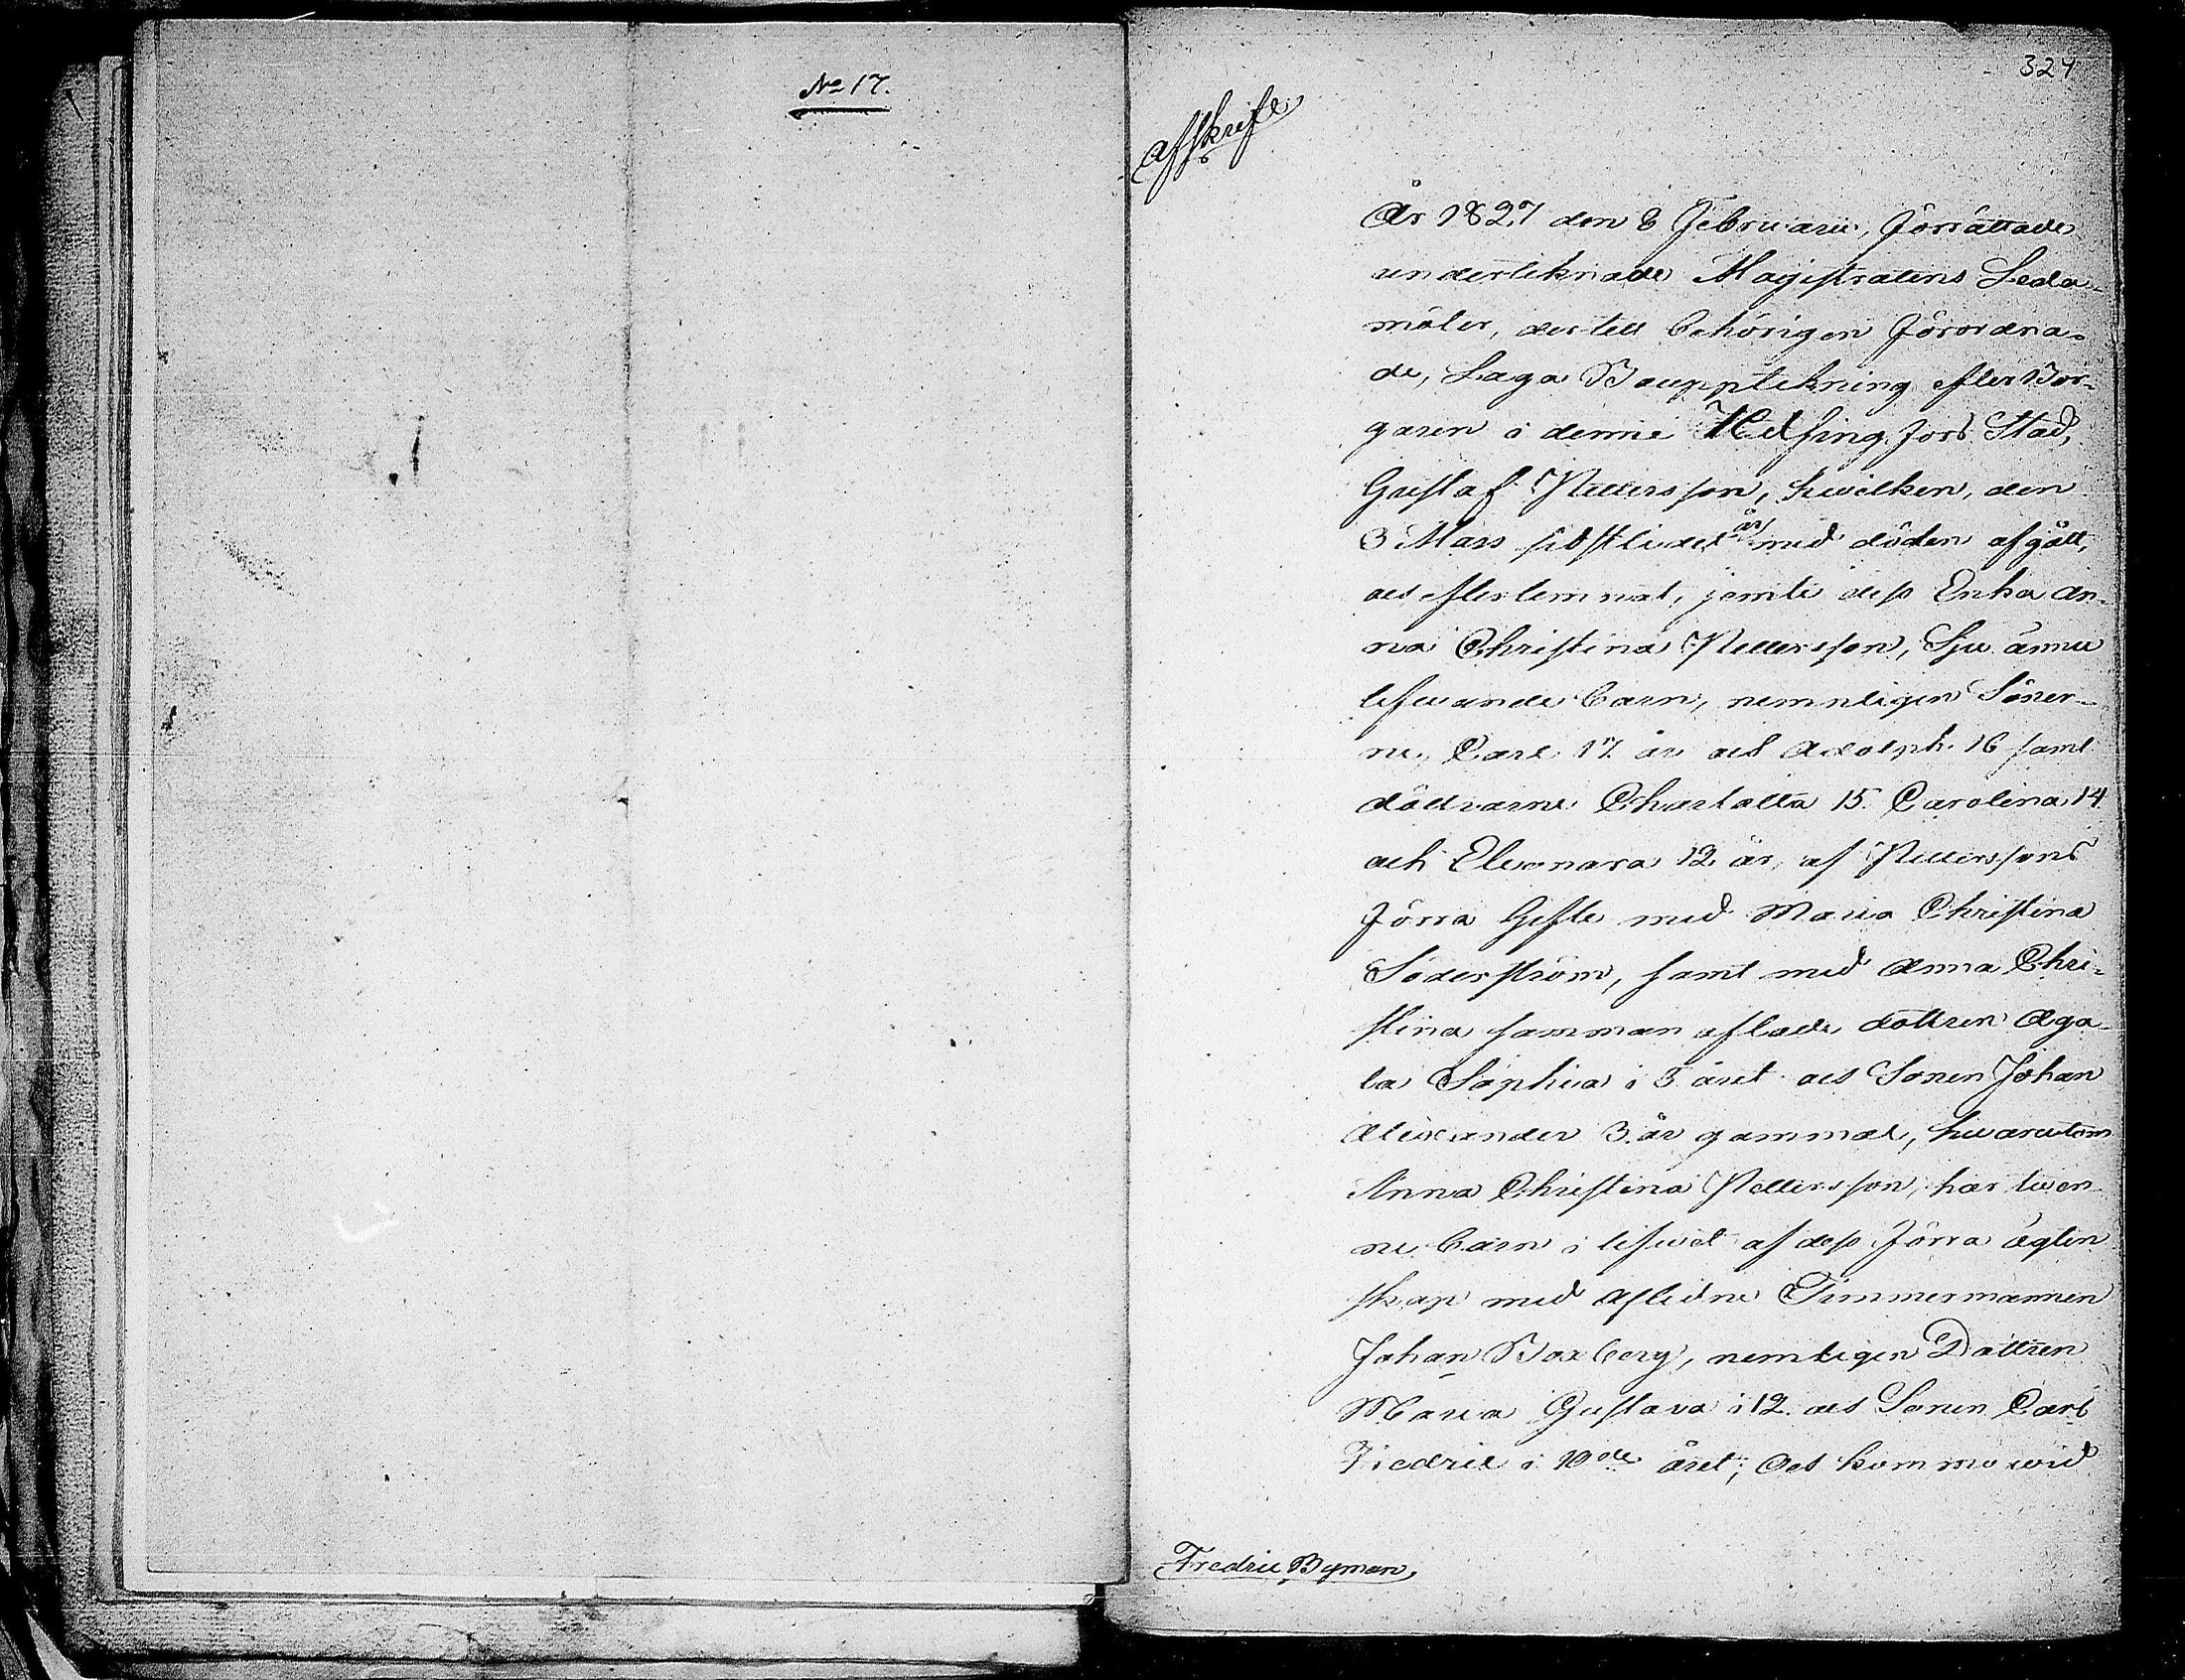 No 17.
324
Afskrift
År 1827 den 8 Februarii, förrättade
underteknade Magistratens Leda-
möter, dertill behörigen förordna-
de, Laga Bouppteckning efter Bor-
garen i denne Helsingfors Stad,
Gustaf Pettersson, hvilken, den
3 Mars sidstledet år med döden afgått,
och efterlemnat, jemte dess Enka An-
na Christina Pettersson, Sju ännu
lefwande barn, nemnligen Söner-
ne, Carl 17 år och Adolph 16 samt
döttrarne Charlotta 15. Carolina 14
och Eleonora 12 år, af Petterssons
förra Gifte med Maria Christina
Söderström, samt med Anna Chri-
stina samman aflade dottren Aga-
ta Sophia i 5 året och Sonen Johan
Alexander 3 år gammal, hwarutom
Anna Christina Pettersson, har twen-
ne barn i lifwet af dess förra ägten
skap med Aflidne Timmermannen
Johan Boxberg, nemligen Dottren
Maria Gustava i 12. och Sonen Carl
Fredric i 10de året; Och kommo wid
Fredric Byman,